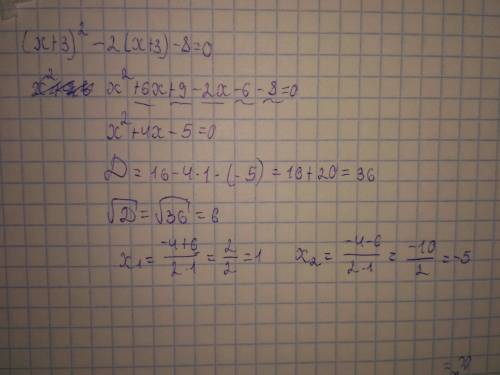 (x+3)² -2(x+3)-8=0
x²+6x+9-2x-6-8=0
x²+4x-5=0
D = 16-4·1·(-5) = 16+20 = 36
√D = √36 = 6
x₁ = (-4+6)/(2·1) = 2/2 = 1 x₂ = (-4-6)/(2·1) = -10/2 = -5